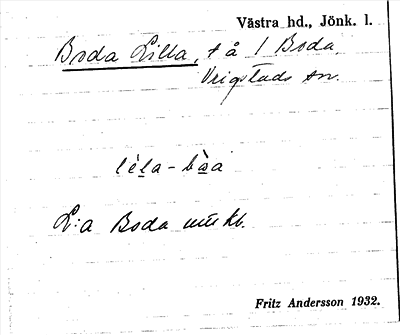 Västra hd., Jönk. l.
Boda Lilla, t å 1 Boda,
Vrigstads sn.
L:a Boda
Fritz Andersson 1932.